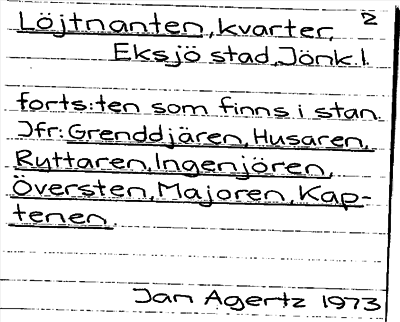 2
Löjtnanten, kvarter,
Eksjö stad, Jönk.l.
forts:ten som finns i stan.
Jfr: Grenddjären, Husaren,
Ryttaren, Ingenjören,
Översten, Majoren, Kap-
tenen.
Jan Agertz 1973